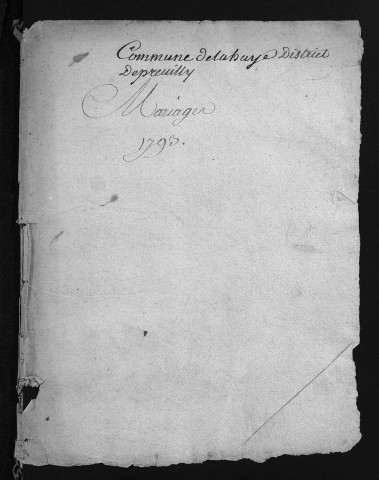 Commune delahaye District
Depreuilly
Mariages
1793.